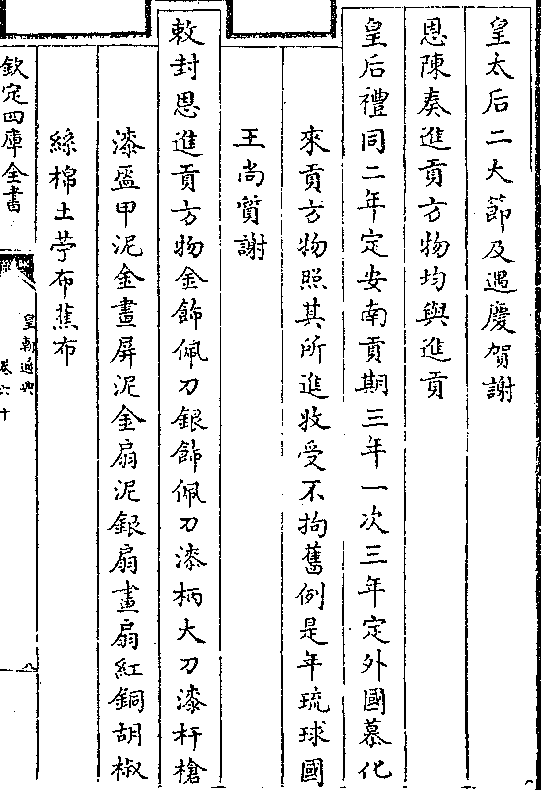 皇太后二大節及遇慶賀謝
恩陳奏進貢方物均與進貢
皇后禮同二年定安南貢期三年一次三年定外國慕化
來貢方物照其所進收受不拘舊例是年琉球國
王尚質謝
敕封恩進貢方物金飾佩刀銀飾佩刀漆柄大刀漆杆槍
漆盔甲泥金畫屏泥金扇泥銀扇畫扇紅銅胡椒
絲棉土苧布蕉布
欽定四庫全書
皇朝通典
卷六十